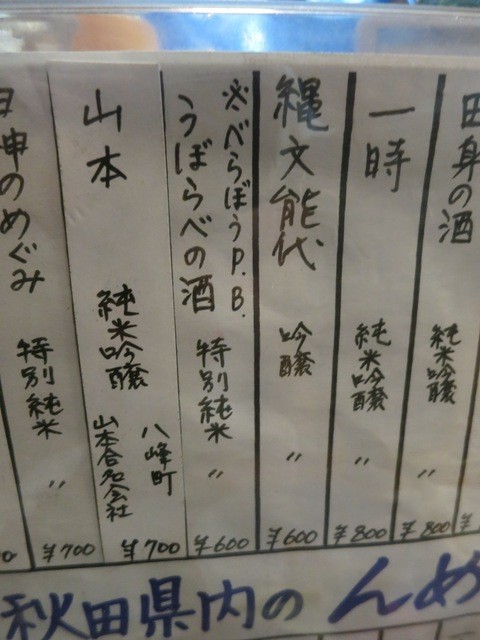 身の酒
純米吟醸
〃
¥800
一時
純米吟醸
〃
¥800
縄文能代
吟醸
〃
¥600
※べらぼうP.B.
うぼらべの酒
特別純米
〃
¥600
山本
純米吟醸
八峰町
山本合名会社
¥700
のめぐみ
特別純米
〃
¥700
秋田県内の んめ